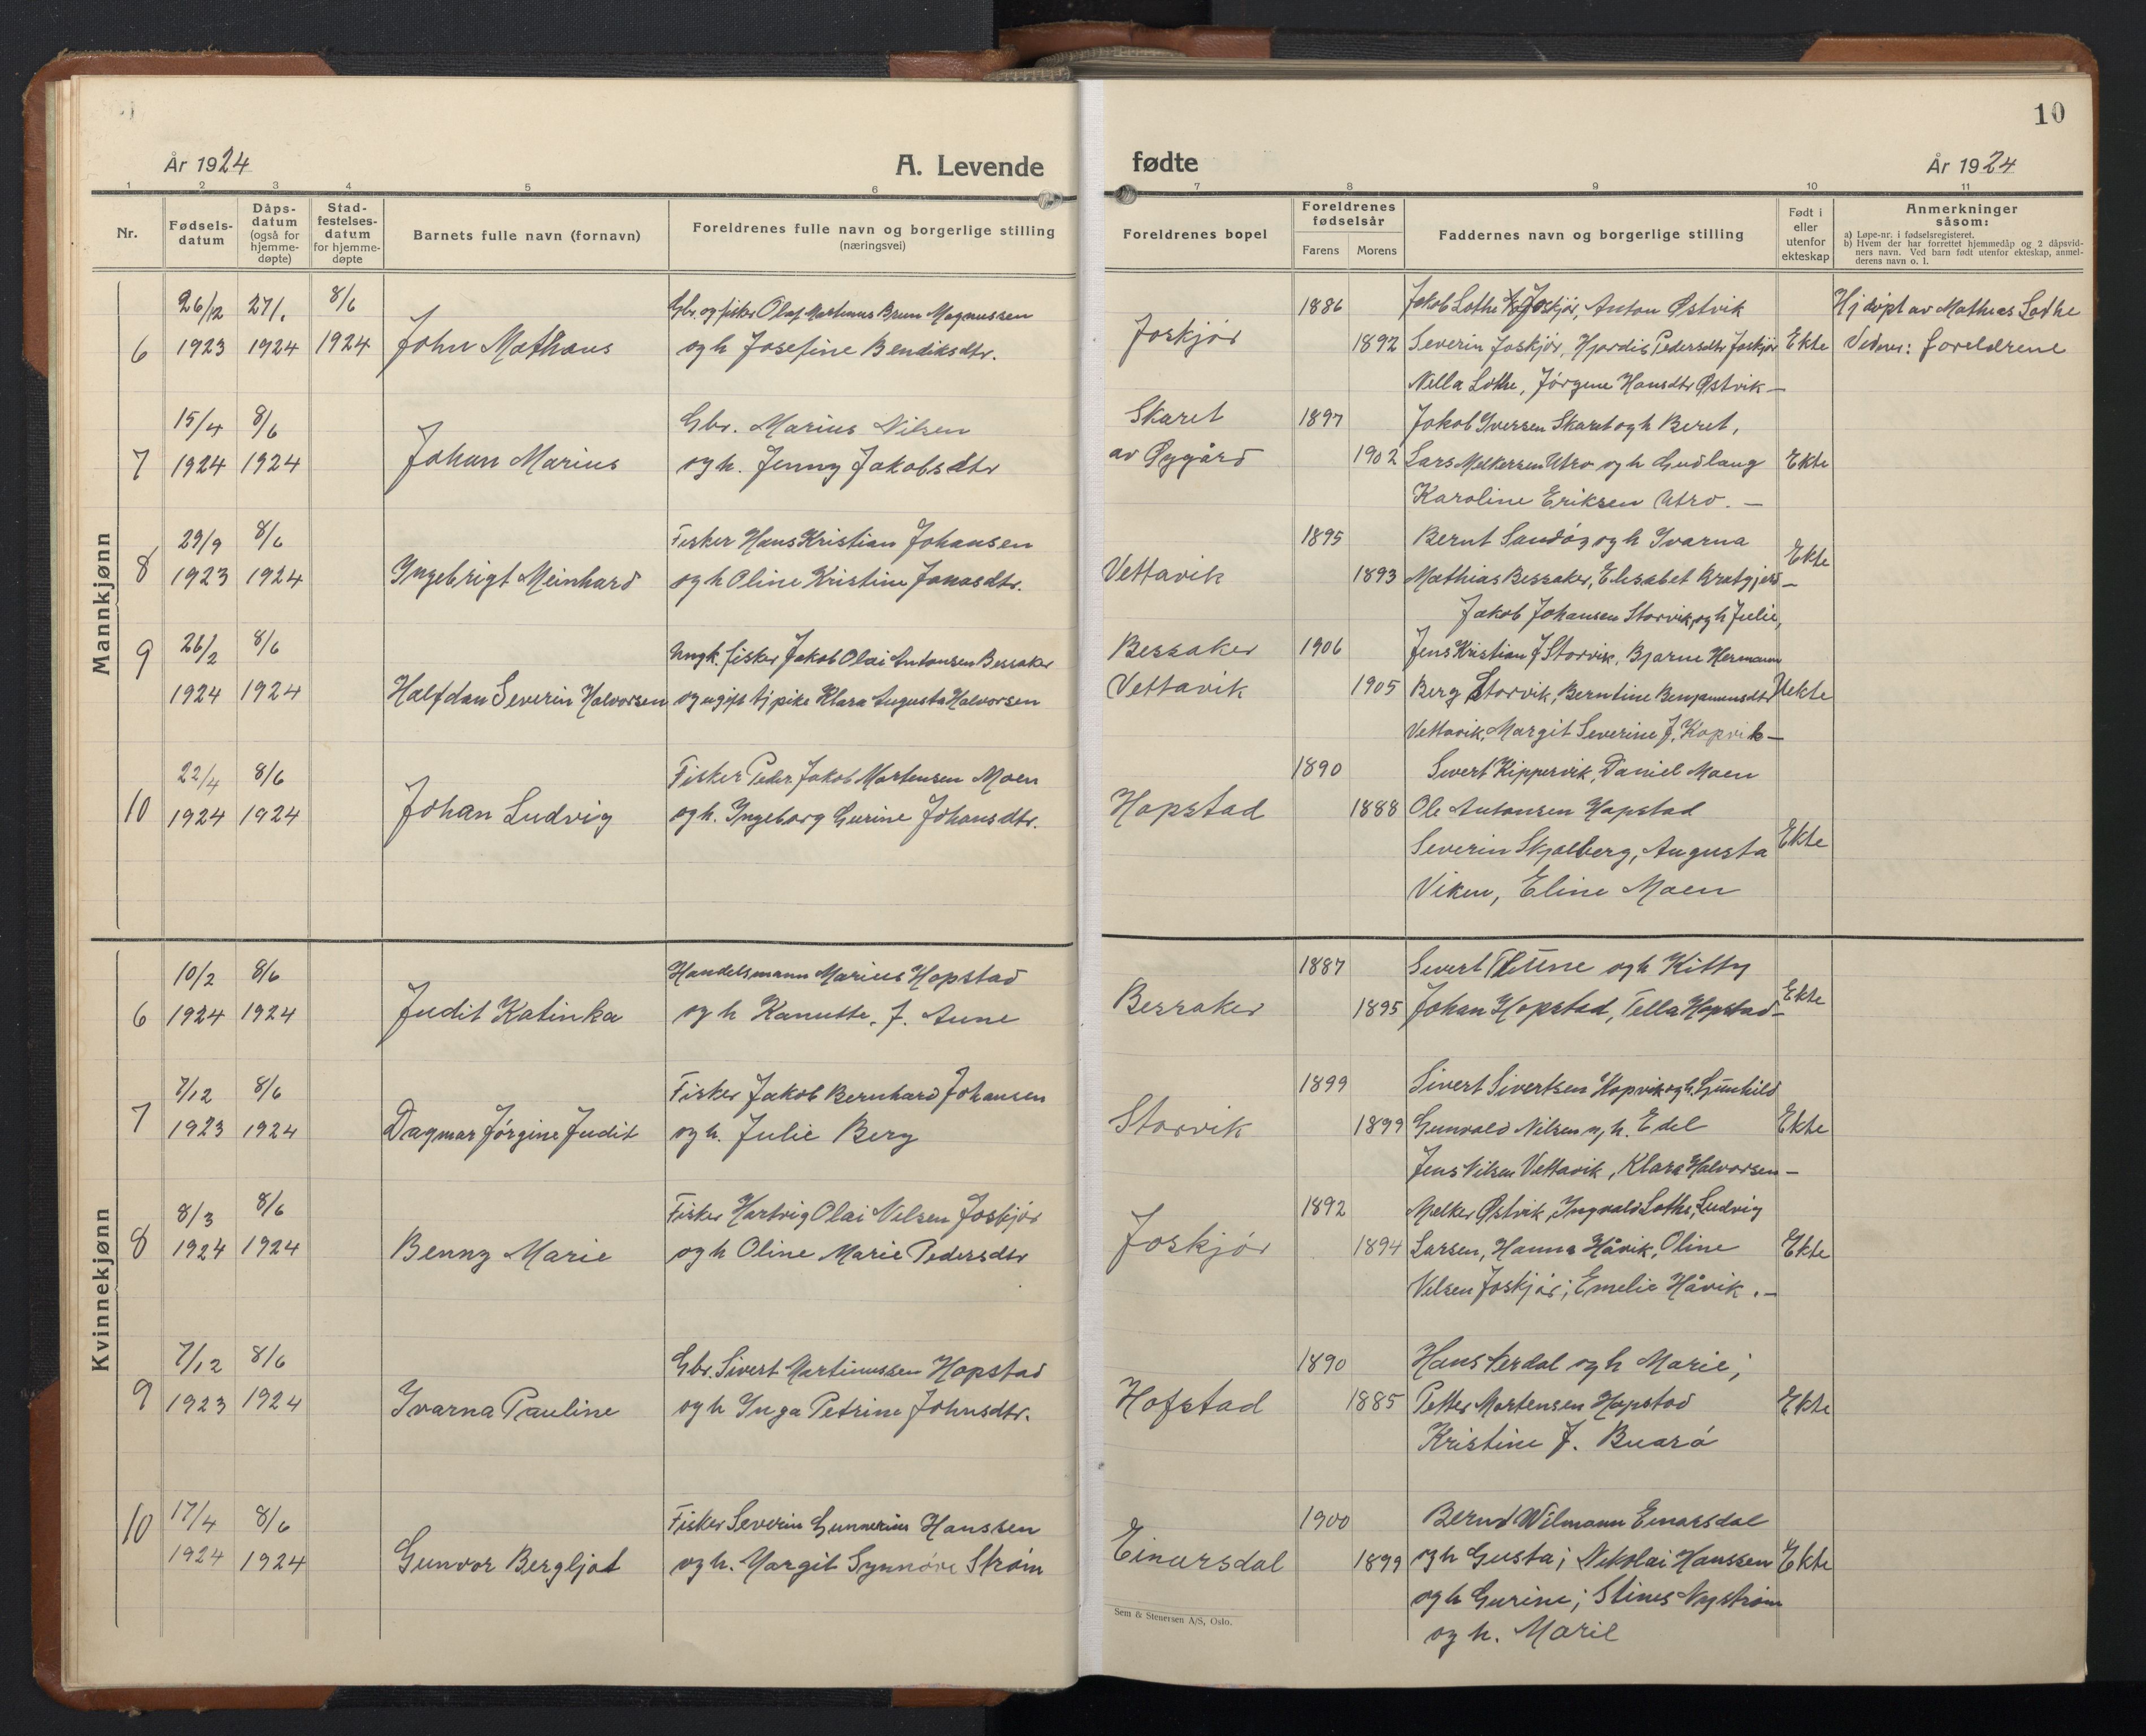 10
År 1924
A. Levende
fødte
År 1924
1 2 3 4 5 6 7 8 9 10 11
Nr.
Fødsels-
datum
Dåps-
datum
(også for
hjemme-
døpte)
Stad-
festelses-
datum
for hjemme-
døpte
Barnets fulle navn (fornavn)
Foreldrenes fulle navn og borgerlige stilling
(næringsvei)
Foreldrenes bopel
Foreldrenes
fødselsår
Farens Morens
Faddernes navn og borgerlige stilling
Født i
eller
utenfor
ekteskap
Anmerkninger
såsom:
a) Løpe-nr. i fødselsregisteret.
b) Hvem der har forrettet hjemmedåp og 2 dåpsvid-
ners navn. Ved barn født utenfor ekteskap, anmel-
derens navn o. l.
Mannkjønn
6
26/12 1923
27/1. 1924
8/6 1924
John Mathæus
Gbr. og fisker Olaf Martinus Brun Magnussen
og h Josefine Bendiksdtr.
Joskjör
1886
1892
Jakob Lothe Joskjör, Anton Østvik
Severin Joskjör, Hjordis Pedersdtr Joskjör
Nella Lothe, Jörgine Hansdtr Østvik —
Ekte
Hj döpt av Mathias Lothe
Vidner: foreldrene
7
15/4 1924
8/6 1924
Johan Marius
Gbr. Marius Nilsen
og h. Jenny Jakobsdtr
Skaret
av Øygård
1897
1902
Jakob Iversen Skaret og h Beret,
Lars Melkersen Utro og h Gudlaug
Karoline Eriksen Utro. —
Ekte
8
29/9 1923
8/6 1924
Ingebrigt Meinhard
Fisker Hans Kristian Johansen
og h Oline Kristine Jonasdtr.
Vettavik
1895
1893
Bernt Sandöy og h Ivarna
Mathias Bessaker, Elisabet —
Jakob Johansen Storvik, og h Julie,
Ekte
9
26/2 1924
8/6 1924
Halfdan Severin Halvorsen
Ungk. fisker Jakob Olai Antonsen Bessaker
og ugift tj pike Klara Augusta Halvorsen
Bessaker
Vettavik
1906
1905
Jens Kristian J Storvik, Bjarne Hermann
Berg Storvik, Berntine Benjaminsdtr
Vettavik, Margit Severine J. Kopvik —
Uekte
10
22/4 1924
8/6 1924
Johan Ludvig
Fisker Peder Jakob Mortensen Moen
og h. Ingeborg Gurine Johansdtr.
Hopstad
1890
1888
Sivert Kippervik, Daniel Moen
Ole Antonsen Hopstad
Severin Skjelberg, Augusta
Viken, Eline Moen
Ekte
Kvinnekjønn
6
10/2 1924
8/6 1924
Judit Katinka
Handelsmann Marius Hopstad
og h Kanutte. J. Aune
Bessaker
1887
1895
Sivert og h Kitty
Johan Hopstad, Tella Hopstad —
Ekte
7
7/12 1923
8/6 1924
Dagmar Jörgine Judit
Fisker Jakob Bernhard Johansen
og h. Julie Berg
Storvik
1899
1899
Sivert Sivertsen Kopvik og h. Gunhild
Gunvald Nilsen og h. Edel
Jens Nilsen Vettavik, Klara Halvorsen —
Ekte
8
8/3 1924
8/6 1924
Benny Marie
Fisker Hartvig Olai Nilsen Joskjör
og h Oline Marie Pedersdtr
Joskjör
1892
1894
Melker Østvik, Ingvald Lothe, Ludvig
Larsen, Hanna Håvik, Oline
Nilsen Joskjör; Emelie Håvik. —
Ekte
9
7/12 1923
8/6 1924
Ivarna Pauline
Gbr. Sivert Martinussen Hopstad
og h Inga Petrine Johnsdtr.
Hofstad
1890
1885
Hans Terdal og h Marie;
Petter Mortensen Hopstad
Kristine J. Buarö
Ekte
10
17/4 1924
8/6 1924
Gunvor Bergljot
Fisker Severin Gunnerius Hanssen
og h. Margit Synnöve Ström
Einarsdal
1900
1899
Bernt Wilmann Einarsdal
og h Gusta; Nikolai Hanssen
og h Gurine; Stines Nyström
og h. Marie
Ekte
Sem & Stenersen A/S, Oslo.